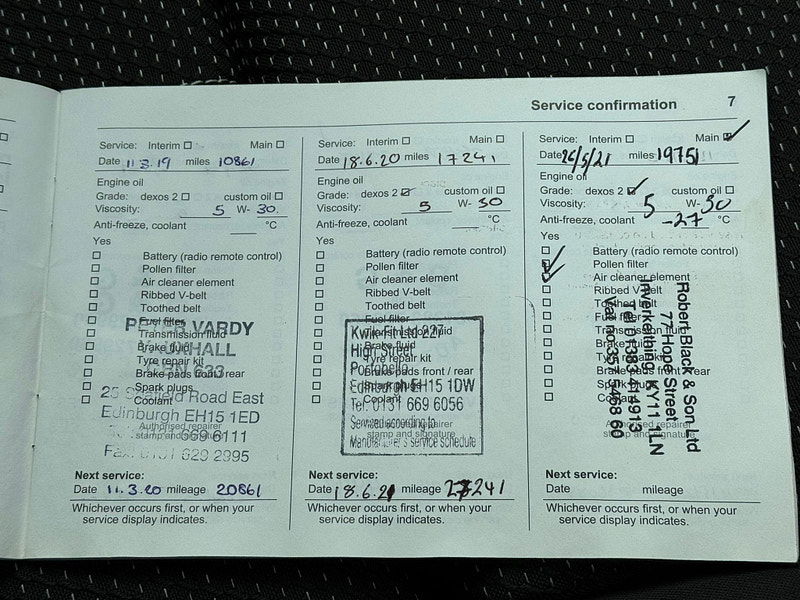 Service confirmation 7
Service: Interim Main
Date 11.3.19 miles 10861
Engine oil
Grade: dexos 2 custom oil
Viscosity: 5 W- 30
Anti-freeze, coolant °C
Yes
Battery (radio remote control)
Pollen filter
Air cleaner element
Ribbed V-belt
Toothed belt
Fuel filter
Transmission fluid
Brake fluid
Tyre repair kit
Brake pads front / rear
Spark plugs
Coolant
VARDY
Road East
Edinburgh EH15 1ED
669 6111
Authorised repairer
stamp and signature
Next service:
Date 11.3.20 mileage 20861
Whichever occurs first, or when your
service display indicates.
Service: Interim Main
Date 18.6.20 miles 17241
Engine oil
Grade: dexos 2 custom oil
Viscosity: 5 W- 30
Anti-freeze, coolant °C
Yes
Battery (radio remote control)
Pollen filter
Air cleaner element
Ribbed V-belt
Toothed belt
Brake fluid
Tyre repair kit
Brake pads front / rear
Spark plugs
Coolant
Kwik Fit Ltd 227
High Street
Portobello
Edinburgh EH15 1DW
Tel: 0131 669 6056
Serviced according to
Manufacturer's service schedule
stamp and signature
Next service:
Date 18.6.21 mileage 27241
Whichever occurs first, or when your
service display indicates.
Service: Interim Main
Date 26/5/21 miles 19751
Engine oil
Grade: dexos 2 custom oil
Viscosity: 5 W- 30
Anti-freeze, coolant -27 °C
Yes
Battery (radio remote control)
Pollen filter
Air cleaner element
Ribbed V-belt
Toothed belt
Brake pads front / rear
Robert Black & Son Ltd
77 Hope Street
Inverkeithing KY11 1LN
Tel 01383 414913
Next service:
Date mileage
Whichever occurs first, or when your
service display indicates.